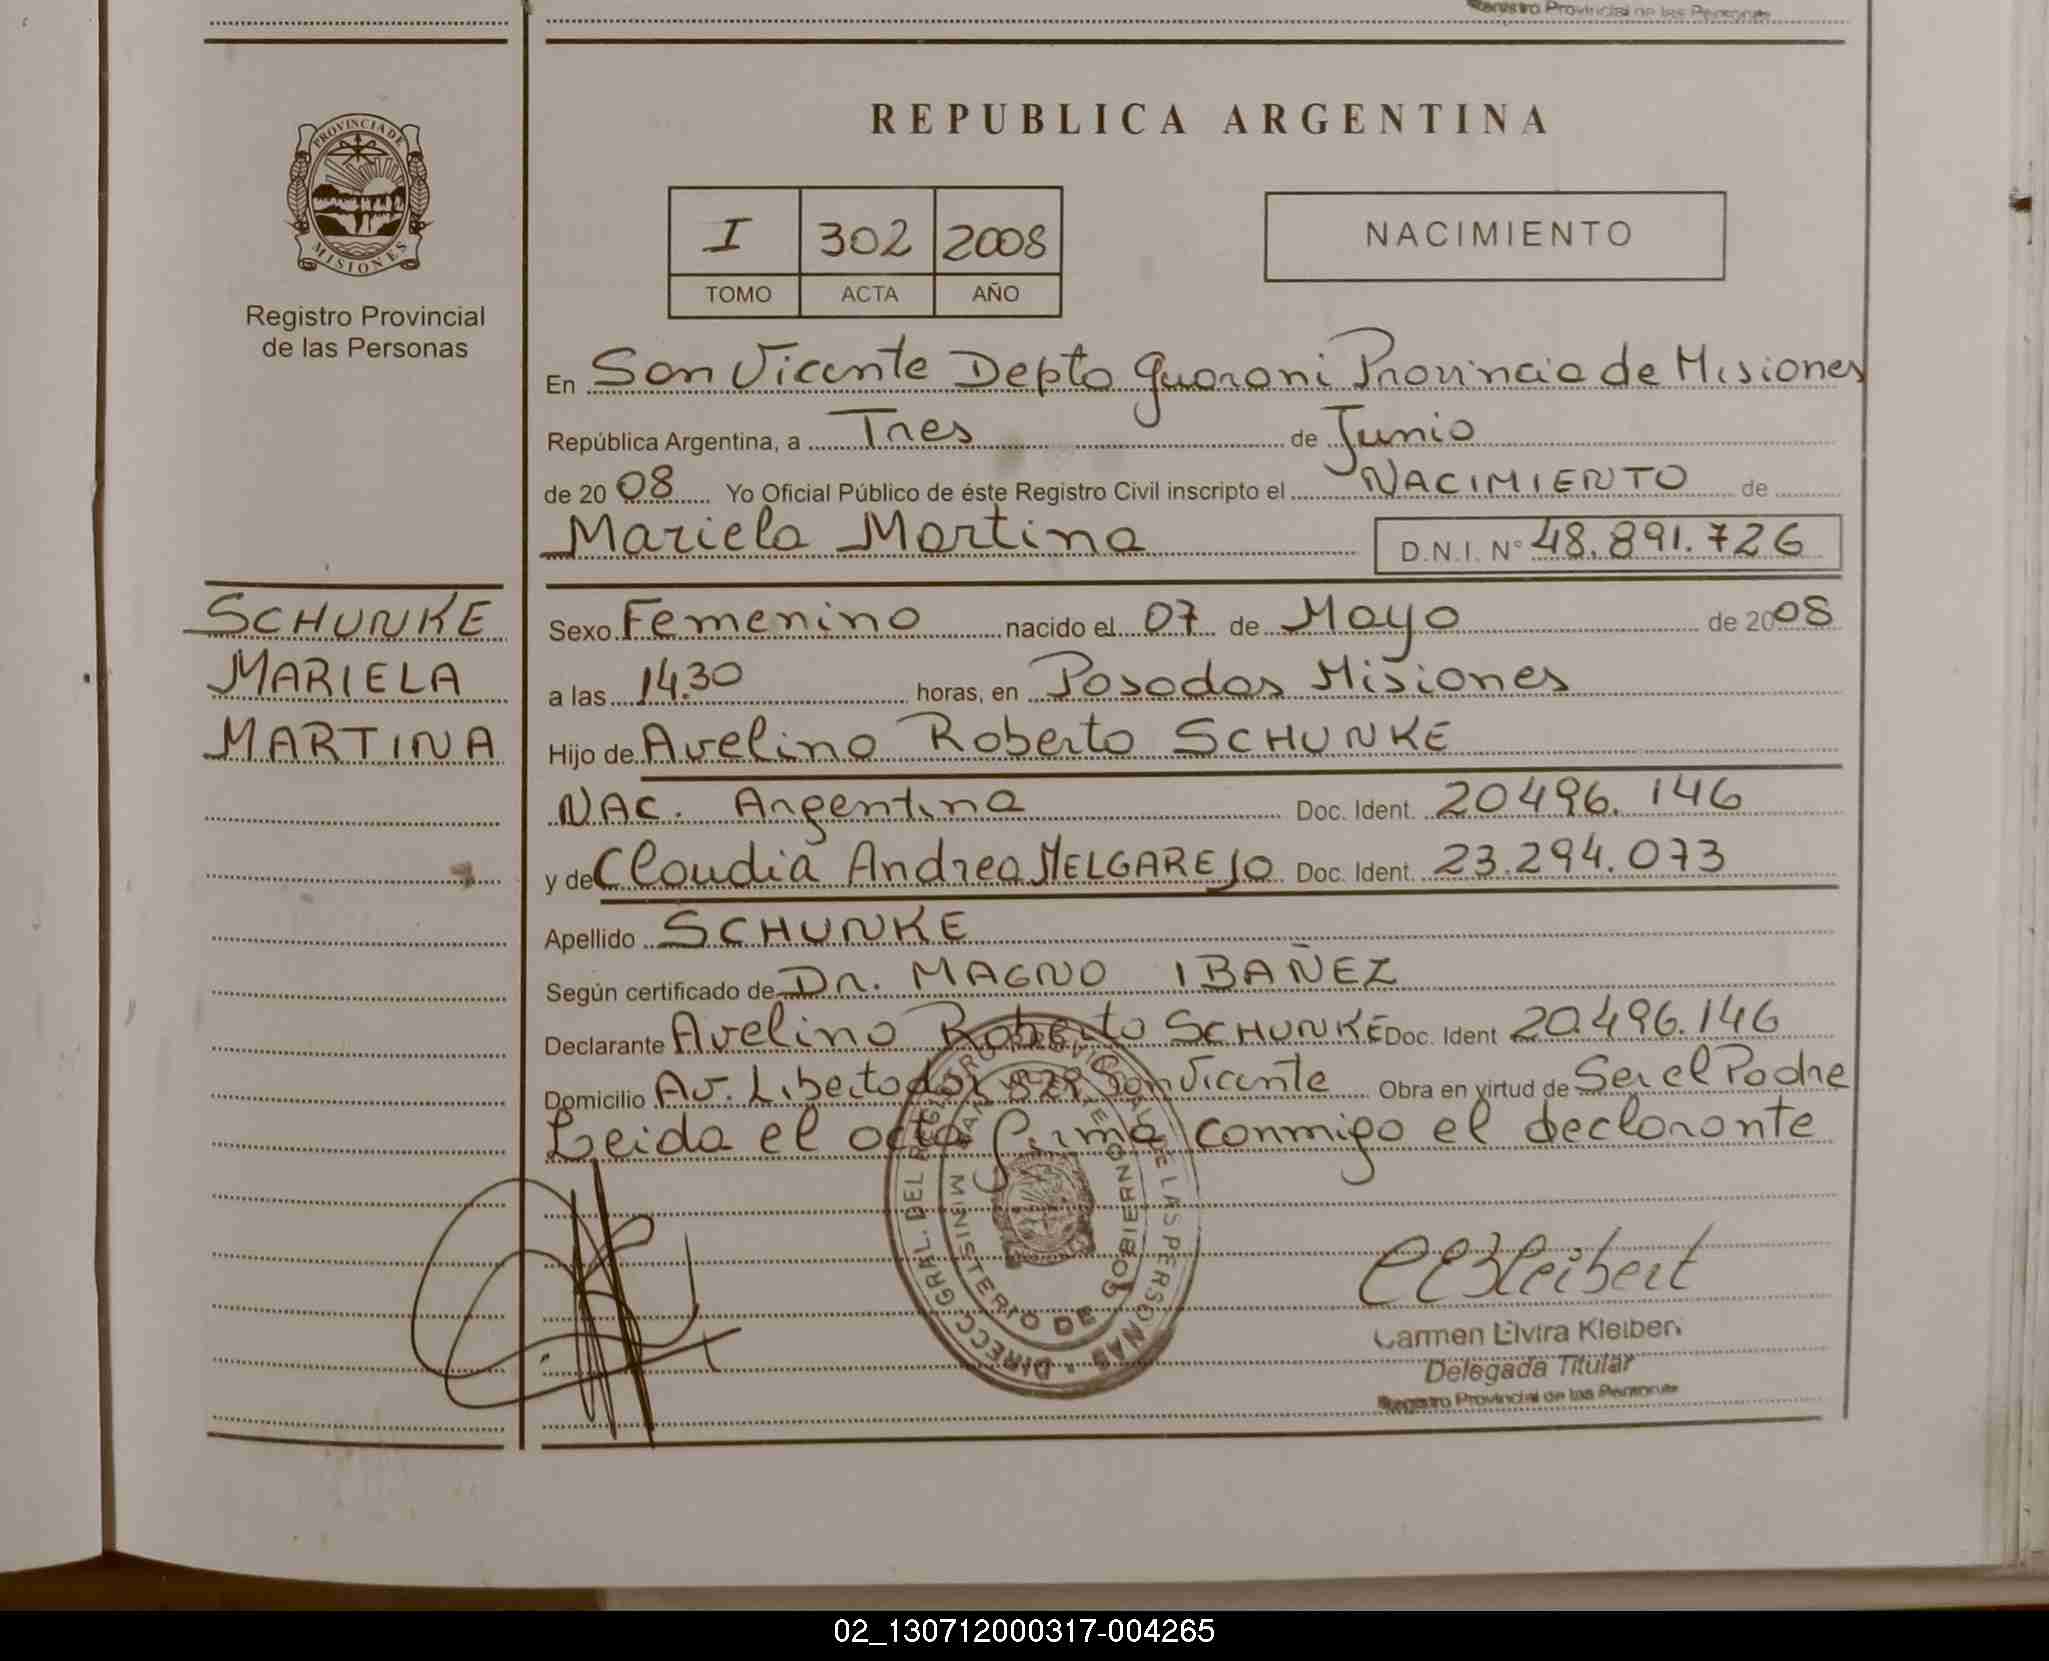 Registro Provincial de las Personas
PROVINCIA DE
MISIONES
Registro Provincial
de las Personas
REPUBLICA ARGENTINA
I 302 2008
TOMO ACTA AÑO
NACIMIENTO
En San Vicente Depto Guarani Provincia de Misiones
República Argentina, a Tres de Junio
de 2008 Yo Oficial Público de éste Registro Civil inscripto el NACIMIENTO de
Mariela Martina D.N.I. Nº 48.891.726
SCHUNKE
MARIELA
MARTINA
Sexo Femenino nacido el 07 de Mayo de 2008
a las 14.30 horas, en Posadas Misiones
Hijo de Avelino Roberto SCHUNKE
NAC. Argentina Doc. Ident. 20496.146
y de Claudia Andrea MELGAREJO Doc. Ident. 23.294.073
Apellido SCHUNKE
Según certificado de Dr. MAGNO IBAÑEZ
Declarante Avelino Roberto SCHUNKE Doc. Ident 20.496.146
Domicilio Av. Libertador San Vicente Obra en virtud de Ser el Padre
Leida el acta firma conmigo el declarante
DIRECC. GRAL. DEL REGISTRO PROVINCIAL DE LAS PERSONAS
MINISTERIO DE GOBIERNO
SAN VICENTE
CEKleibert
Carmen Elvira Kleibert
Delegada Titular
Registro Provincial de las Personas
02_130712000317-004265